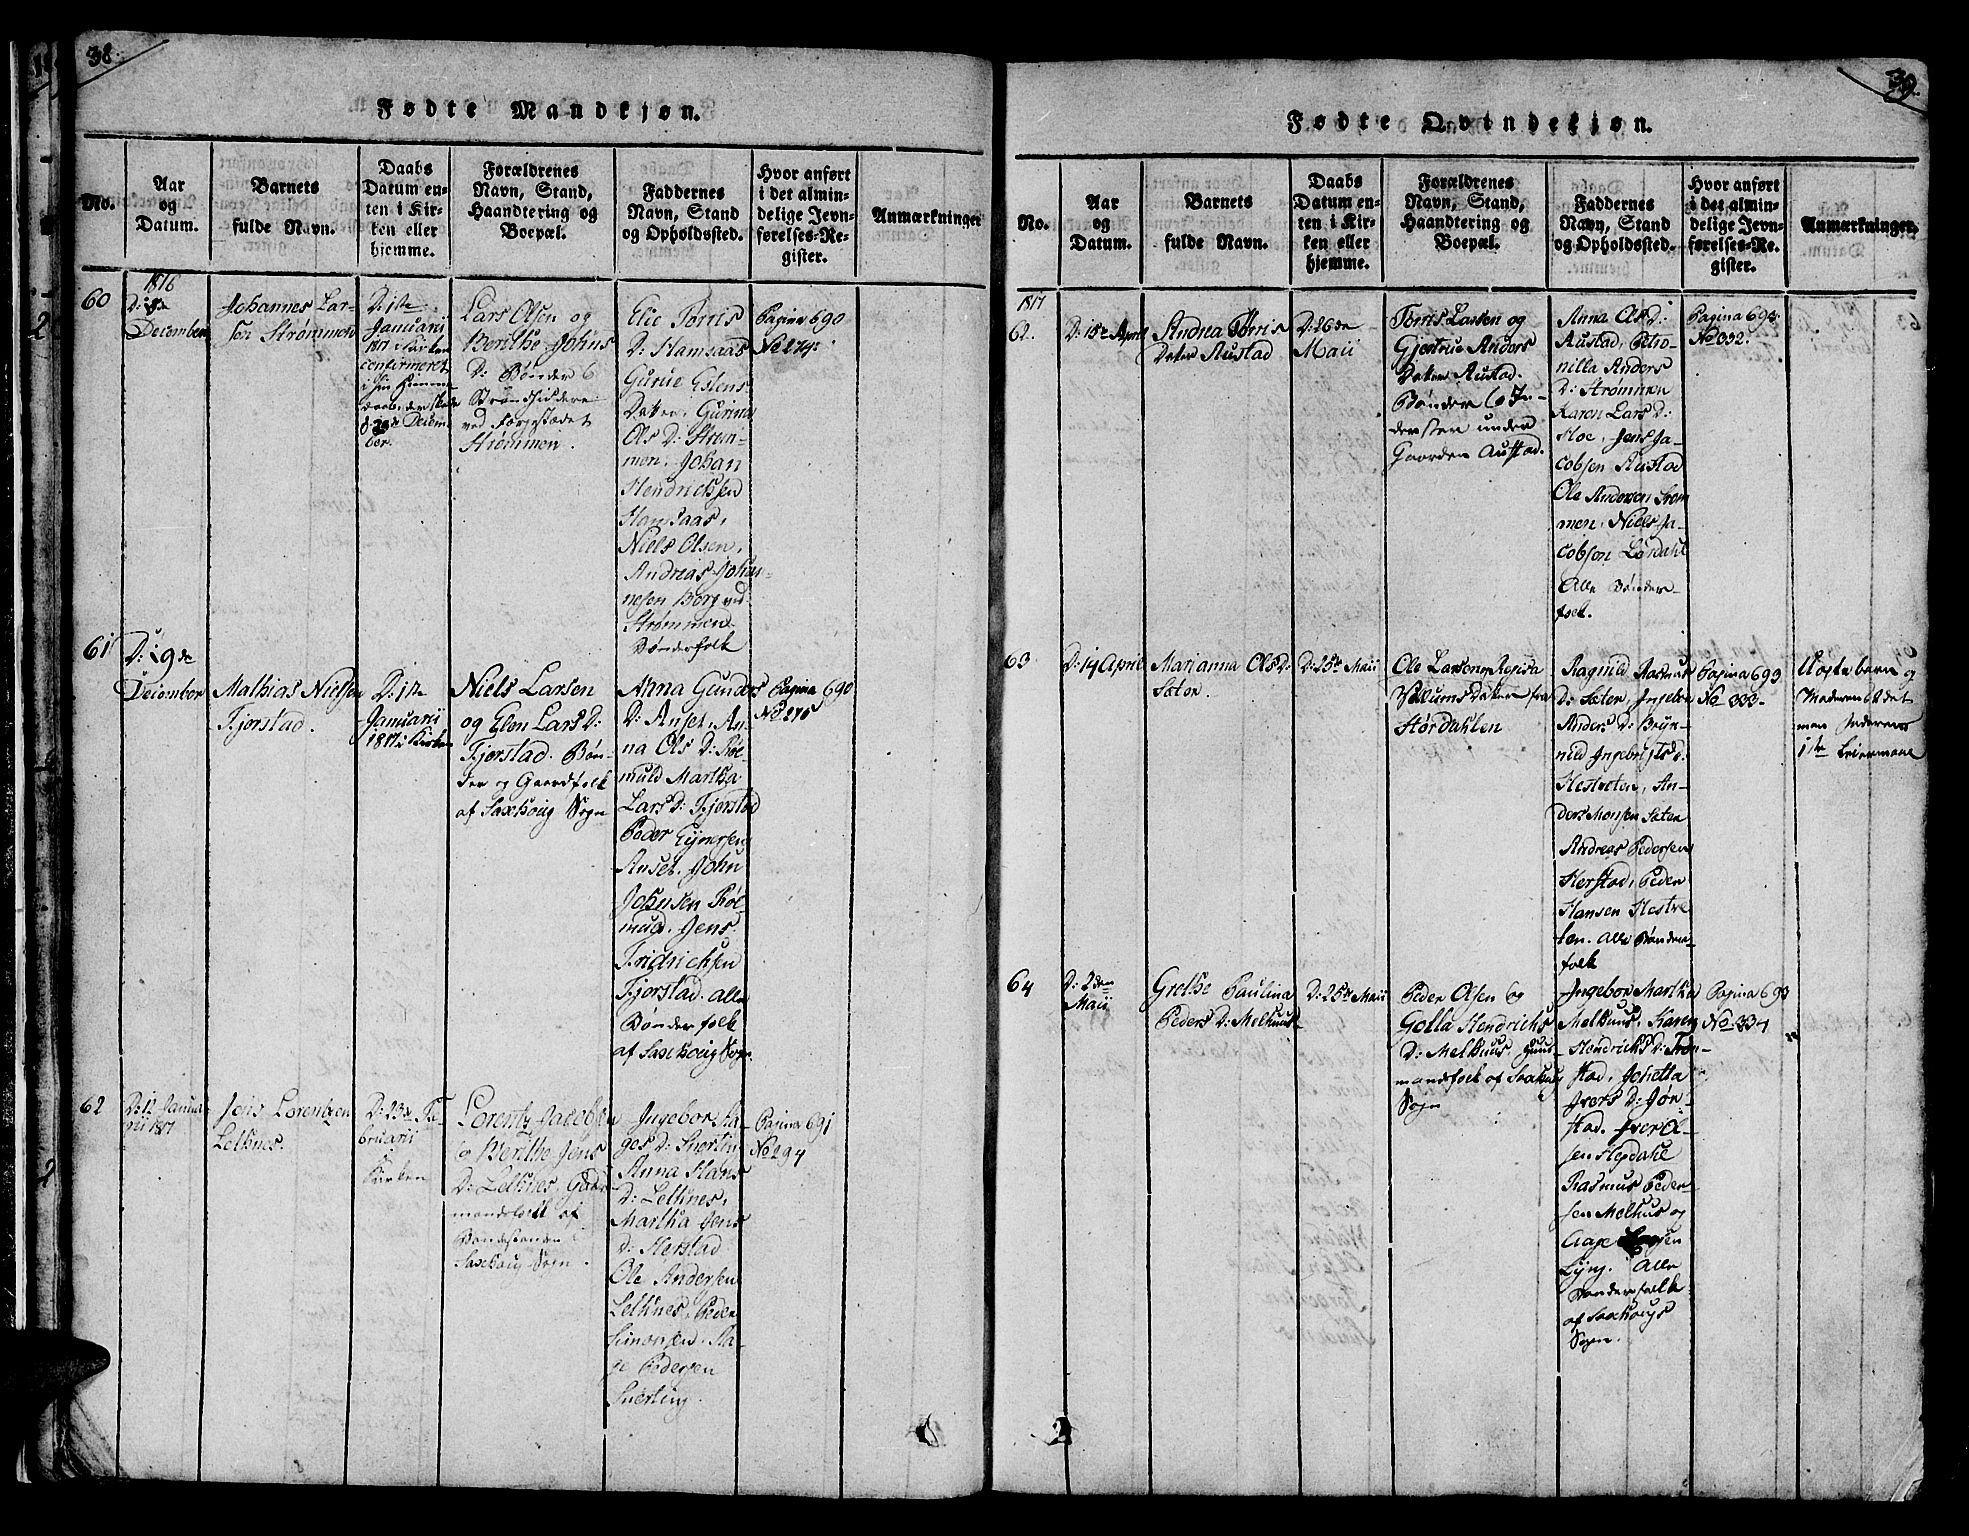 38.
Fødte Mandkjøn.
No.
Aar
og
Datum.
Barnets
fulde Navn.
Daabs
Datum en-
ten i Kir-
ken eller
hjemme.
Forældrenes
Navn, Stand,
Haandtering og
Boepæl.
Faddernes
Navn, Stand
og Opholdssted.
Hvor anført
i det almin-
delige Jevn-
førelses-Re-
gister.
Anmærkninger
60
1816
December
Johannes Lar-
sen Strømmen
D: 1ste
Januarii
1817 i Kirken
confirmeret
i sin Hjemme
daab, der skede
December
Lars Olsen og
Berithe Johns
D: Bønder
Strandsiddere
ved Færgestædet
Strømmen.
Elie Torris
D: Hamsaas
Gurue Estens
Datter, Gurina
Ols D: Strøm-
men. Johan
Hendrichsen
Hamsaas,
Niels Olsen,
Andreas Johan-
nesen Borg ved
Strømmen.
Bønderfolk
Pagina 690
No 274.
61
D: 19de
December
Mathias Nielsen
Fjorstad.
D: 1ste
Januarii
1817 i Kirken
Niels Larsen
og Elen Lars D:
Fjorstad. Bøn-
der og Gaardfolk
af Saxhoug Sogn
Anna Gunders
D: Anset. An-
na Ols D: Røl-
muld Martha
Lars D: Fjorstad
Peder
Anset. John
Johnsen Røl-
mud. Jens
Fridrichsen
Fjorstad. alle
Bønderfolk
af Saxhoug Sogn.
Pagina 690
No 275
62
D: 12 Janua-
rii 1817
Jens Lorentzen
Letknes.
D: 23de Fe-
bruarii
i
Kirken
Lorentz Jacobsen
og Berithe Jens
D: Letknes Gaard-
mandsfolk af
Bondestanden i
Saxhoug Sogn.
Ingebor Aa-
ges D: Snerting
Anna Hans
D: Letknes,
Martha Jens
D: Herstad
Ole Andersen
Letknes, Peder
Simonsen. Aa-
ge Pedersen
Snerting.
Pagina 691
No 294
39.
Fødte Qvindekjøn.
No.
Aar
og
Datum.
Barnets
fulde Navn.
Daabs
Datum en-
ten i Kir-
ken eller
hjemme.
Forældrenes
Navn, Stand,
Haandtering og
Boepæl.
Faddernes
Navn, Stand
og Opholdssted.
Hvor anført
i det almin-
delige Jevn-
førelses-Re-
gister.
Anmærkninger.
1817
62.
D: 15de April
Andrea Torris
Datter Austad
D: 26de
Maii
Torris Larsen og
Gjertrue Anders
Datter Austad.
Bønder og In-
dersten under
Gaarden Austad.
Anna Ols D:
Austad, Petro-
nilla Anders
D: Strømmen
Karen Lars D:
Hoe, Jens Ja-
cobsen Austad
Ole Andersen Strøm
men, Niels Ja-
cobsen Lørdahl
Alle Bønder-
folk.
Pagina 693.
No 332.
63
D: 14 April
Marianna Ols D:
Sæter.
D: 25de Maii
Ole Larsen og Regisa
Villums Datter fra
Størdahlen
Ragnild Rasmus
D: Sæter, Ingebor
Anders D: Bryn-
nild Ingebrigts D:
Hestveten, An-
ders Monsen Sæter
Andreas Pedersen
Herstad, Peder
Hansen Hestve
ten. Alle Bønder-
folk
Pagina 693
No 333.
Uægte barn og
Moderens
1ste Leiermaal
64
D: 2den
Maii
Grethe Paulina
Peders D: Melhuus
D: 25de Maii
Peder Olsen og
Golla Hendrichs
D: Melhuus. Huus-
mandsfolk af Saxhoug
Sogn
Ingebor Martha
Melhuus, Karen
Hendrichs D: Trøn-
stad, Johetta
Ivers D: Jør-
stad. Iver Ol-
sen Hepdahl
Rasmus Peder-
sen Melhus og
Aage
Lyng. Alle
Bønderfolk
af Saxhougs
Sogn.
Pagina 693
No 334